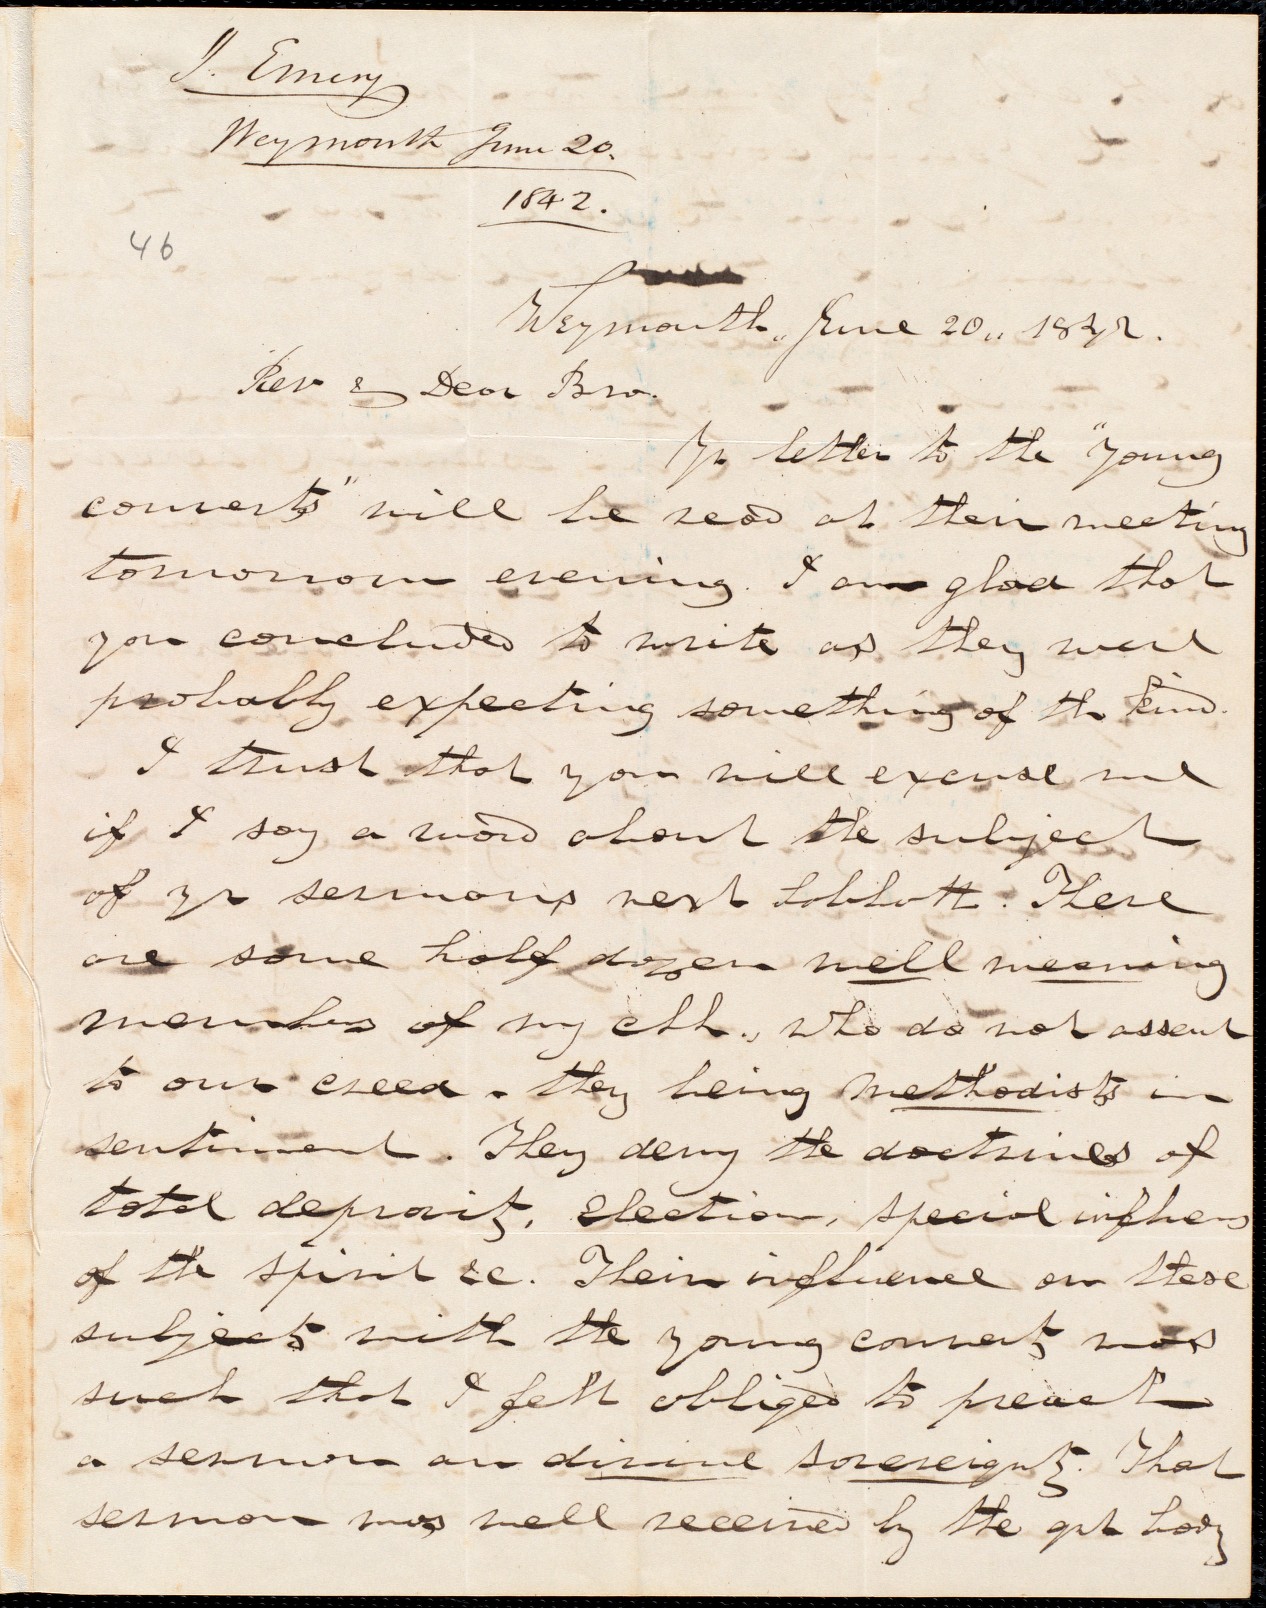 J. Emery
Weymouth June 20.
1842.
46
Weymouth, June 20,, 1842.
Rev & Dear Bro.
Yr letter to the "young
converts" will be read at their meeting
tomorrow evening. I am glad that
you concluded to write as they were
probably expecting something of the kind.
I trust that you will excuse me
if I say a word about the subject
of yr sermons next Sabbath. There
are some half dozen well meaning
members of my chh., who do not assent
to our creed - they being methodists in
sentiment. They deny the doctrines of
total depravity, election, special influens
of the spirit &c. Their influence on these
subjects with the young converts was
such that I felt obliged to preach
a sermon on divine sovereignty. That
sermon was well received by the grt body